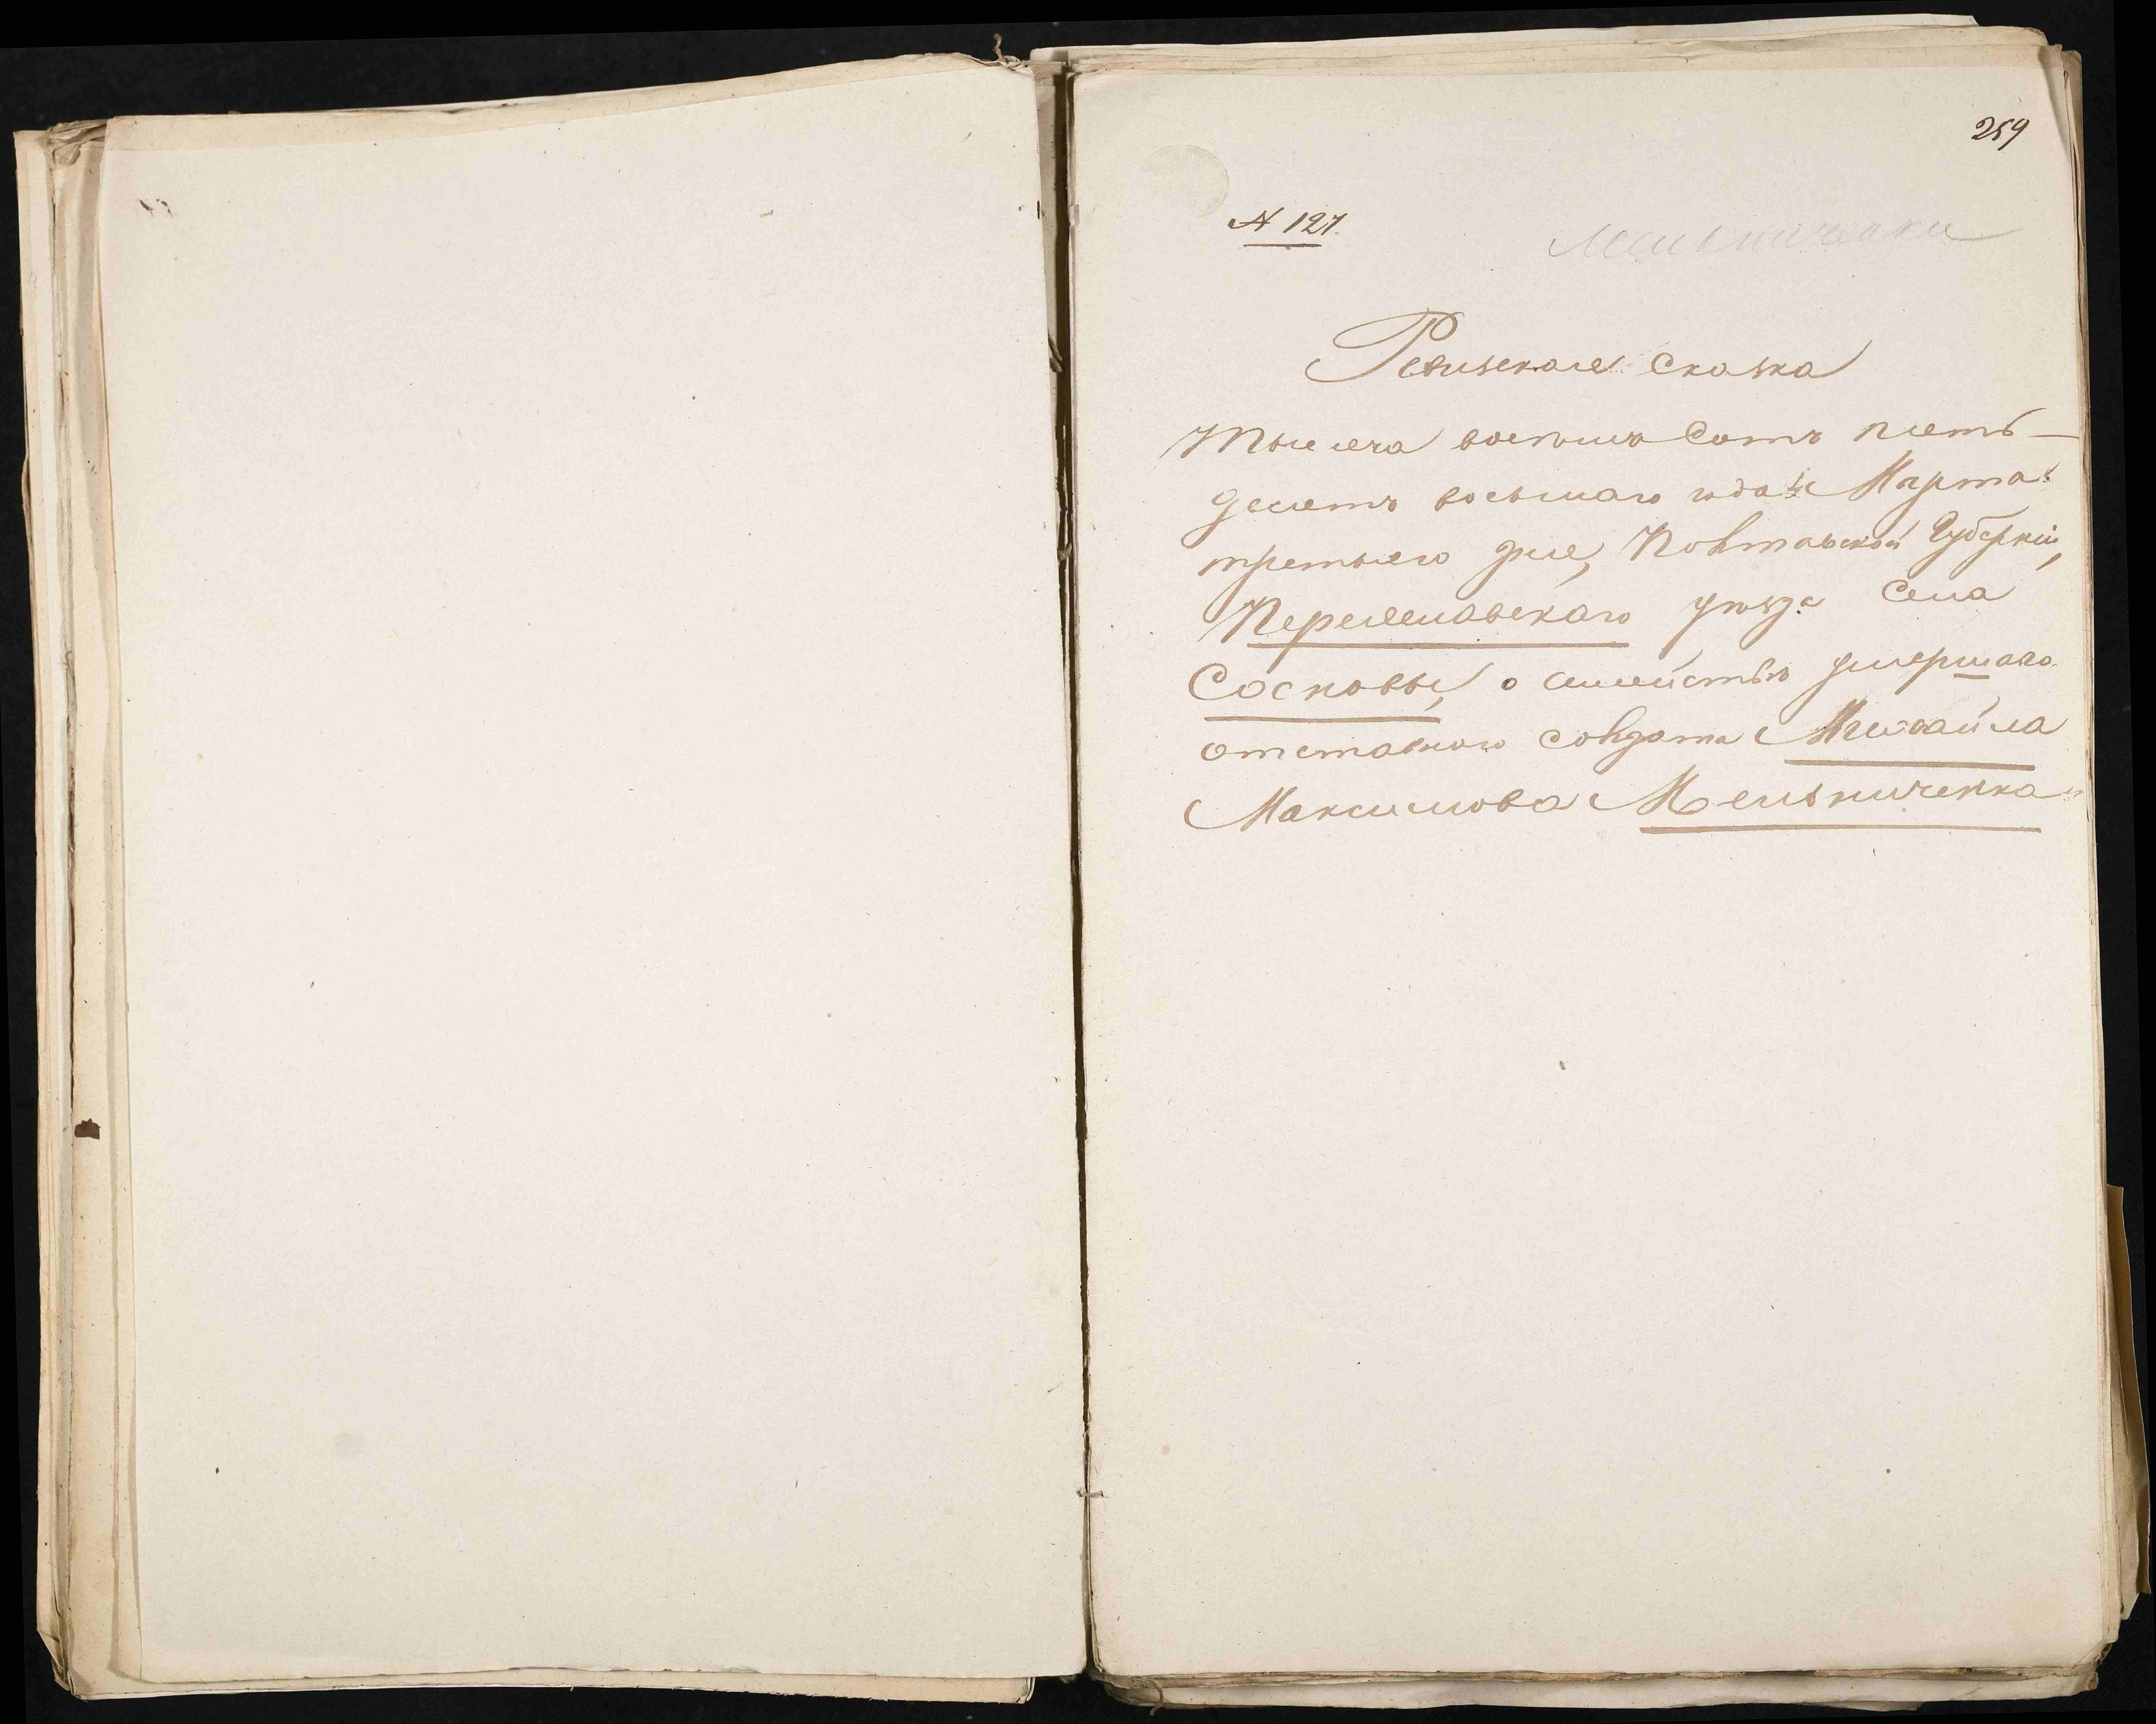 259
№ 127.
Мельниченки
Ревизская Сказка
Тысяча восемь Сотъ пять-
десятъ восьмаго года Марта
третьяго дня, Полтавской Губерніи,
Переяславскаго уѣзда Села
Сосновы, о семействѣ умершаго
отставного солдата Михайла
Максимова Мельниченка